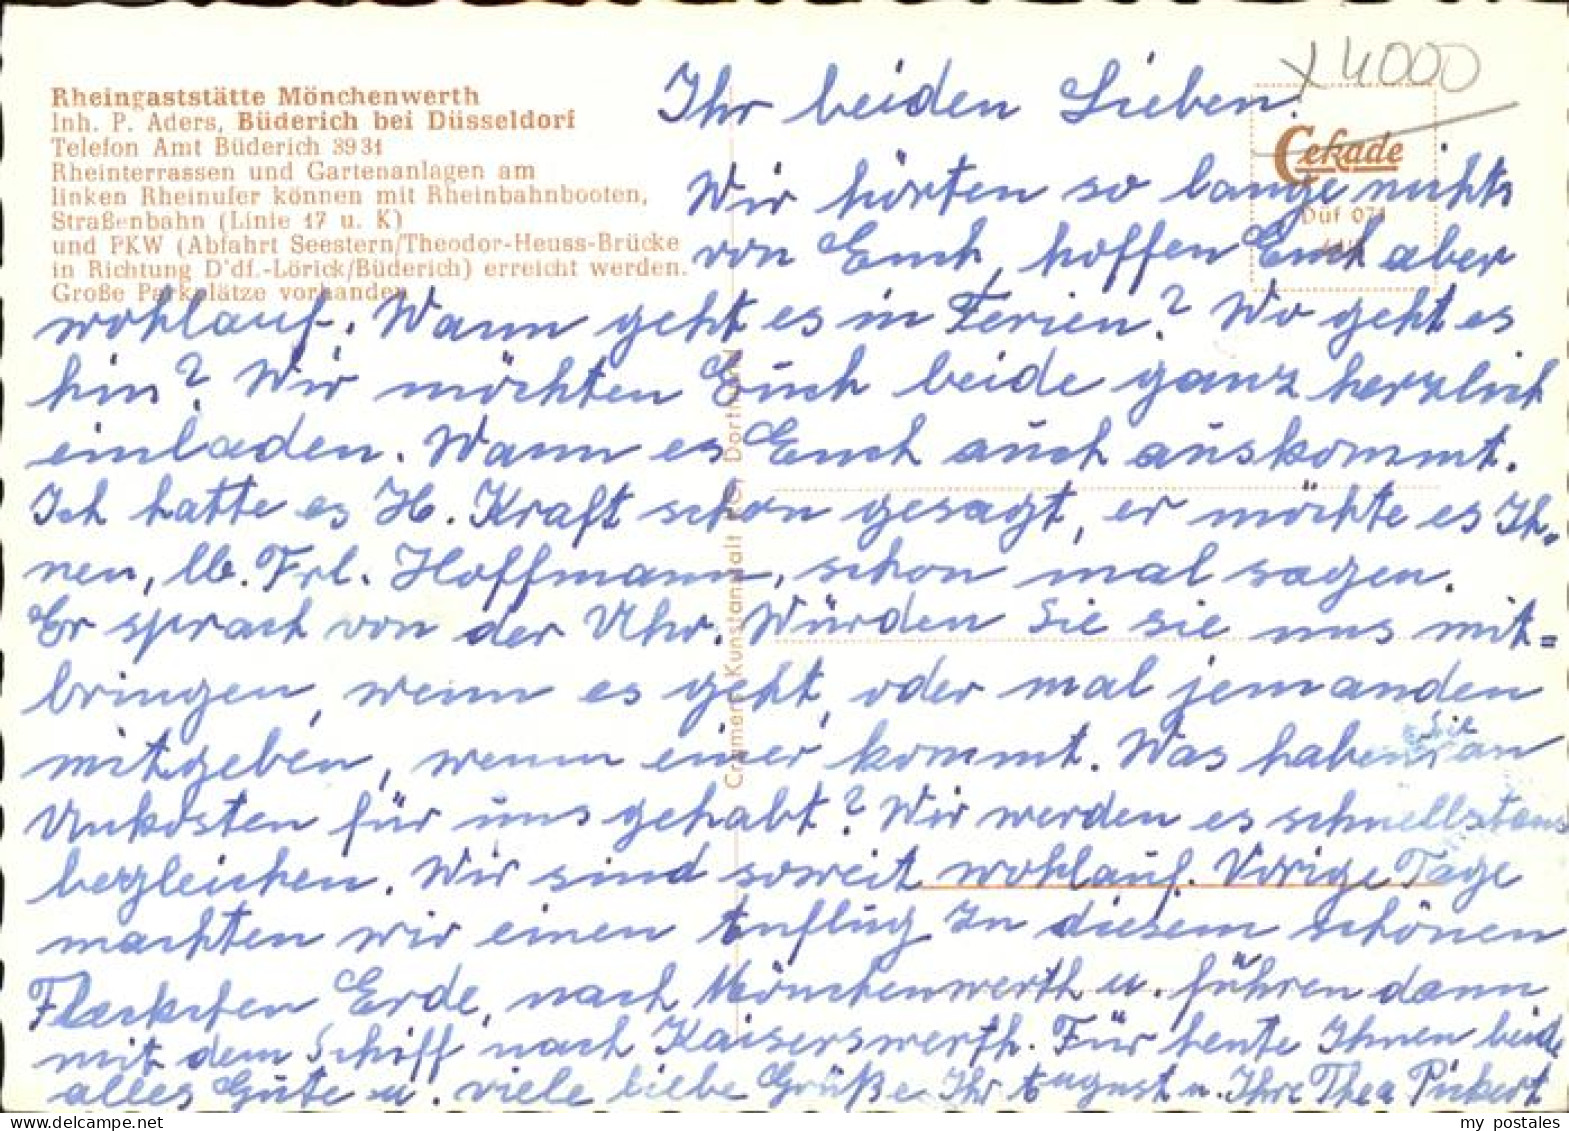 Rheingaststätte Mönchenwerth
Inh. P. Aders, Büderich bei Düsseldorf
Telefon Amt Büderich 3931
Rheinterrassen und Gartenanlagen am
linken Rheinufer können mit Rheinbahnbooten,
Straßenbahn (Linie 17 u. K)
und PKW (Abfahrt Seestern/Theodor-Heuss-Brücke
in Richtung D'df.-Lörick/Büderich) erreicht werden.
Große Parkplätze vorhanden
x 4000
Cekade
Düf 071
Cramers Kunstanstalt KG, Dortmund
Ihr beiden Lieben!
Wir hörten so lange nichts
von Euch, hoffen Euch aber
wohlauf. Wann geht es in Ferien? Wo geht es
hin? Wir möchten Euch beide ganz herzlich
einladen. Wann es Euch auch auskommt.
Ich hatte es H. Kraft schon gesagt, er möchte es Ih-
nen, lb. Frl. Hoffmann, schon mal sagen.
Er sprach von der Uhr. Würden Sie sie uns mit=
bringen, wenn es geht, oder mal jemanden
mitgeben, wenn einer kommt. Was haben Sie an
Unkosten für uns gehabt? Wir werden es schnellstens
begleichen. Wir sind soweit wohlauf. Vorige Tage
machten wir einen Ausflug in diesem schönen
Fleckchen Erde, nach Mönchenwerth u. führen dann
mit dem Schiff nach Kaiserswerth. Für heute Ihnen beide
alles Gute u. viele liebe Grüße Ihr August u. Ihre Thea Pickert
my postales